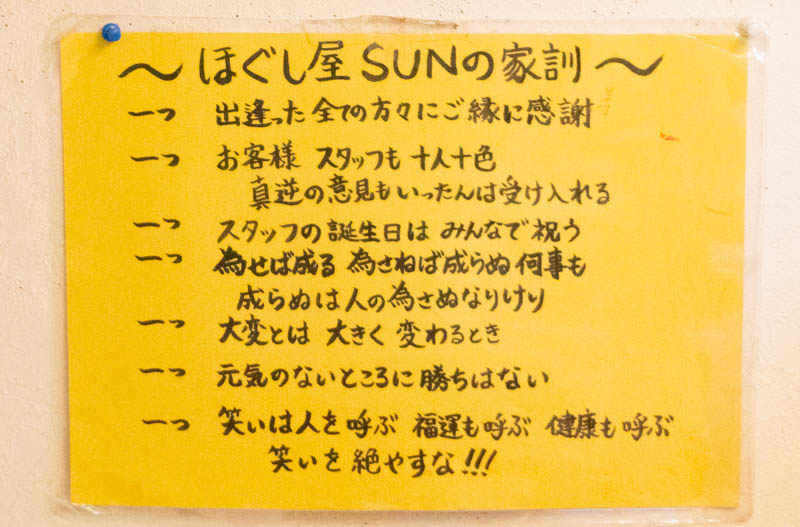 ～ほぐし屋SUNの家訓～
一つ 出逢った全ての方々にご縁に感謝
一つ お客様 スタッフも 十人十色
真逆の意見もいったんは受け入れる
一つ スタッフの誕生日は みんなで祝う
一つ 為せば成る 為さねば成らぬ何事も
成らぬは人の為さぬなりけり
一つ 大変とは 大きく 変わるとき
一つ 元気のないところに勝ちはない
一つ 笑いは人を呼ぶ 福運も呼ぶ 健康も呼ぶ
笑いを絶やすな!!!